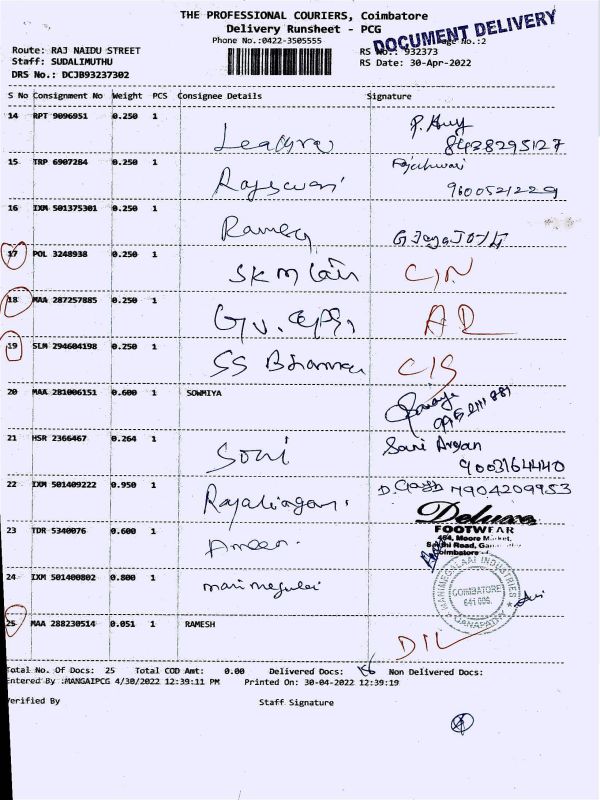 THE PROFESSIONAL COURIERS, Coimbatore
Delivery Runsheet - PCG
DOCUMENT DELIVERY
Phone No.:0422-3505555
Page No.:2
Route: RAJ NAIDU STREET
RS No.: 932373
Staff: SUDALIMUTHU
RS Date: 30-Apr-2022
DRS No.: DCJB93237302
S No Consignment No Weight PCS Consignee Details Signature
14 RPT 9096951 0.250 1
8428295127
15 TRP 6907284 0.250 1 Rajeswari Rajeshwari
9600521229
16 IXM 501375301 0.250 1 Ramesh
17 POL 3248938 0.250 1 C/N
18 MAA 287257885 0.250 1
19 SLM 294604198 0.250 1
20 MAA 281006151 0.600 1 SOWMIYA
21 HSR 2366467 0.264 1 Soni Sani Aryan
9003164440
22 IXM 501409222 0.950 1 Rajalingam. 7904209953
Deluxe
FOOTWEAR
464, Moore Market,
Coimbatore
23 TDR 5340076 0.600 1
24 IXM 501400802 0.800 1 manimegalai
MANIMEGALAAI INDUSTRIES
COIMBATORE
641 006.
GANAPATHY
25 MAA 288230514 0.051 1 RAMESH D/L
Total No. Of Docs: 25 Total COD Amt: 0.00 Delivered Docs: Non Delivered Docs:
Entered By :MANGAIPCG 4/30/2022 12:39:11 PM Printed On: 30-04-2022 12:39:19
Verified By Staff Signature